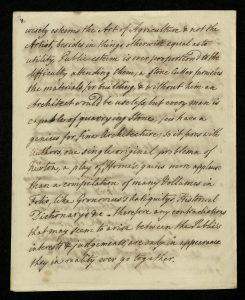 wisely esteems the Art of Agriculture & not the
Artist, besides in things otherwise equal as to
utility Public esteem is ever proportion'd to the
difficulty attending them, a Stone Cutter provides
the materials for building & without him an
Architect would be useless, but every man is
capable of quarrying Stone, few have a
genius for fine Architecture. So it fares with
Authors, one single original problem of
Newton, a play of Homes, gains more applause
than a compilation of many Vollumes in
folio, like Gronovius's Antiquitys, Historical
Dictionarys &c - therefore any contradictions
that may seem to arise between the Publics
interests & judgements, are only in appearance
they in reality ever go together.